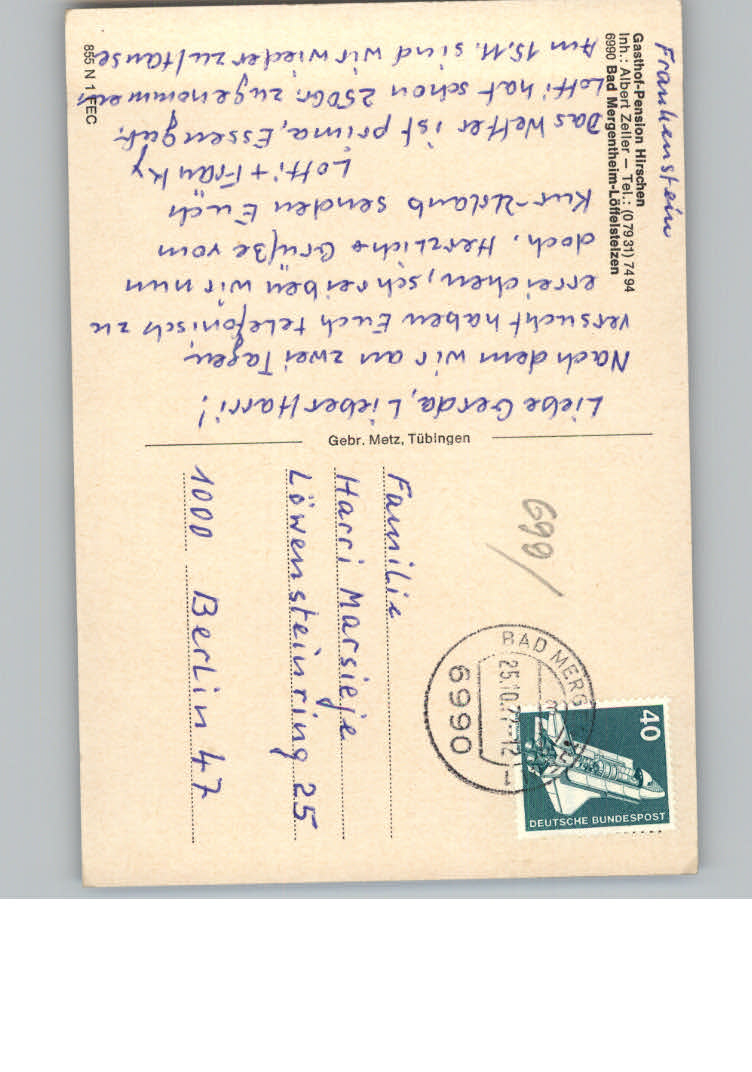 Frankenstein
Gasthof-Pension Hirschen
Inh.: Albert Zeller – Tel.: (0 79 31) 74 94
6990 Bad Mergentheim-Löffelstelzen
Liebe Gerda, Lieber Harri!
Nach dem wir an zwei Tagen
versucht haben Euch telefonisch zu
erreichen, schreiben wir nun
doch. Herzliche Grüße vom
Kur-Urlaub senden Euch
Lotti + Franky
Das Wetter ist prima, Essen gut.
Lotti hat schon 250Gr. zugenommen
Am 15.11. sind wir wieder zu Hause
855 N 1 FEC
Gebr. Metz, Tübingen
699/
BAD MERG
25.10.77-12
6990
1
40
DEUTSCHE BUNDESPOST
Familie
Harri Marsieje
Löwensteinring 25
1000 Berlin 47